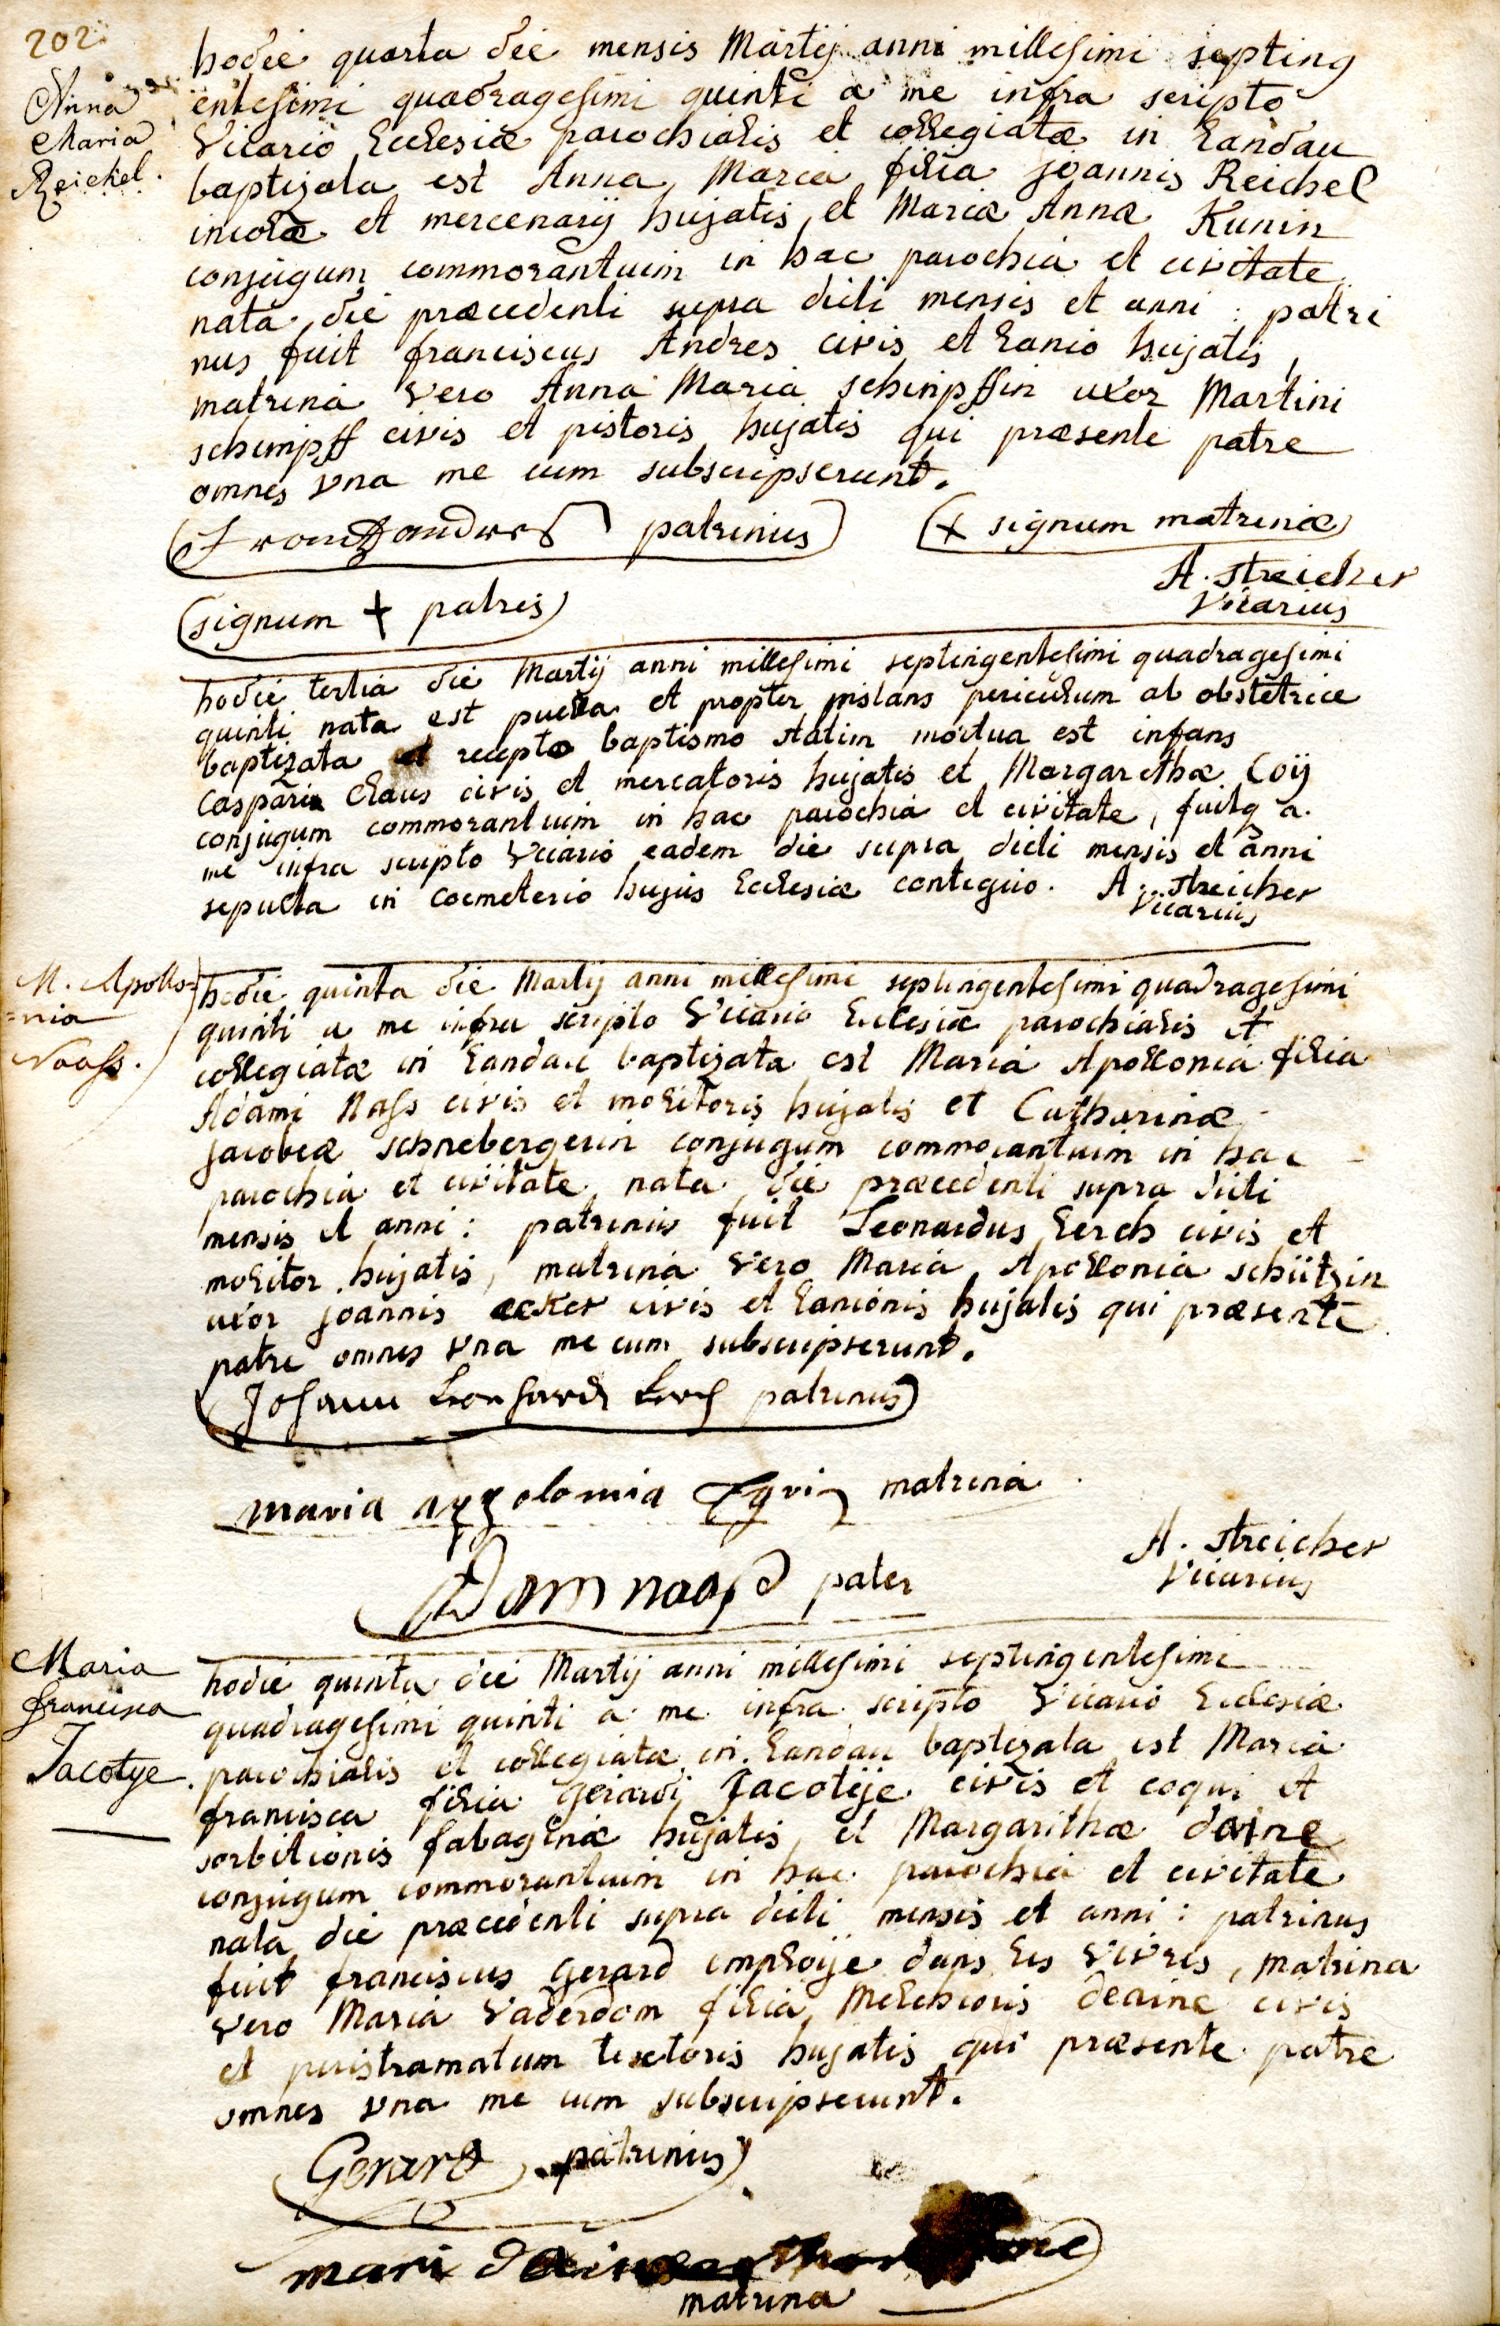 202
Anna
Maria
Reichel.
hodie quarta die mensis Martij anni millesimi septing
entesimi quadragesimi quinti a me infra scripto
Vicario Ecclesiæ parochialis et collegiatæ in Landau
baptizata est Anna Maria filia Joannis Reichel
incolæ et mercenarij hujatis, et Mariæ Annæ Kunin
conjugum commorantium in hac parochia et civitate
nata die præcedenti supra dicti mensis et anni : patri
nus fuit franciscus Andres civis et Lanio hujatis,
matrina vero Anna Maria schimpffin uxor Martini
schimpff civis et pistoris hujatis qui præsente patre
omnes una me cum subscripserunt.
Frantz andres patrinus
+ signum matrinæ
A. Streicher
Vicarius
signum + patris
hodie tertia die Martij anni millesimi septingentesimi quadragesimi
quinti nata est puella et propter instans periculum ab obstetrice
baptizata et recepto baptismo statim mortua est infans
Caspari Claus civis et mercatoris hujatis et Margarethæ Coij
conjugum commorantium in hac parochia et civitate, fuitq a
me infra scripto Vicario eadem die supra dicti mensis et anni
sepulta in Coemeterio hujus Ecclesiæ contiguo. A. Streicher
Vicarius
M. Apollo=
=nia
Naass.
hodie quinta die Martij anni millesimi septingentesimi quadragesimi
quinti a me infra scripto Vicario Ecclesiæ parochialis et
collegiatæ in Landau baptizata est Maria Apollonia filia
Adami Nass civis et molitoris hujatis et Catharinæ
Jacobeæ schnebergerin conjugum commorantium in hac
parochia et civitate nata die præcedenti supra dicti
mensis et anni : patrinus fuit Leonardus Lerch civis et
molitor hujatis, matrina vero Maria Apollonia schützin
uxor Joannis acker civis et Lanionis hujatis qui præsente
patre omnes una me cum subscripserunt.
Johann Leonhard Lerch patrinus
maria matrina
A. Streicher
Vicarius
Adam naass pater
Maria
francisca
Jacotye.
hodie quinta die Martij anni millesimi septingentesimi
quadragesimi quinti a me infra scripto Vicario Ecclesiæ
parochialis et collegiatæ in Landau baptizata est Maria
francisca filia Gerardi Jacotije civis et coqui et
sorbitionis fabaginæ hujatis, et Margarithæ daine
conjugum commorantium in hac parochia et civitate
nata die præcedenti supra dicti mensis et anni : patrinus
fuit franciscus Gerard emploije dans les vivres, matrina
vero Maria Vaderdom filia Melchioris deaine civis
et peristramatum textoris hujatis qui præsente patre
omnes una me cum subscripserunt.
Gerard patrinus
mari
matrina